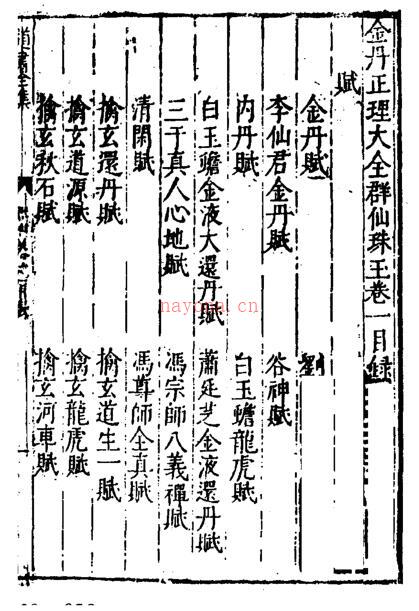 金丹正理大全群仙珠玉卷一目録
賦
金丹賦 劉
李仙君金丹賦 谷神賦
内丹賦 白玉蟾龍虎賦
白玉蟾金液大還丹賦 蕭廷芝金液還丹賦
三于真人心地賦 馮宗師八義禪賦
清閑賦 馮尊師全真賦
擒玄還丹賦 擒玄道生一賦
擒玄道源賦 擒玄龍虎賦
擒玄秋石賦 擒玄河車賦
道書全集
nayona.cn